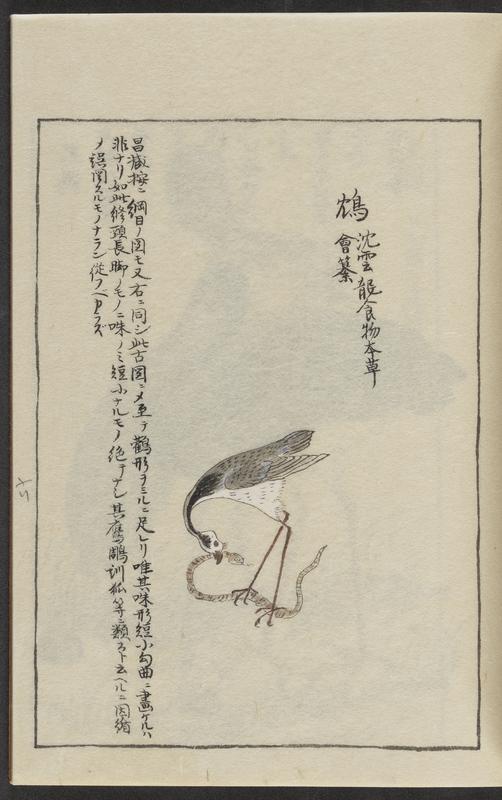 鴆
沈雲龍食物本草
會纂
昌臧按ニ綱目ノ図モ又右ニ同シ此古図ニメ至テ鸛形ヲミルニ足レリ唯其咮形短小勾曲ニ畫ケルハ
非ナリ如此修頸長脚ノモノニ咮ノミ短小ナルモノ絶テナシ其鷹鵰訓狐等ニ類スト云ヘルニ因循
ノ誤図スルモノナラン從フベカラズ